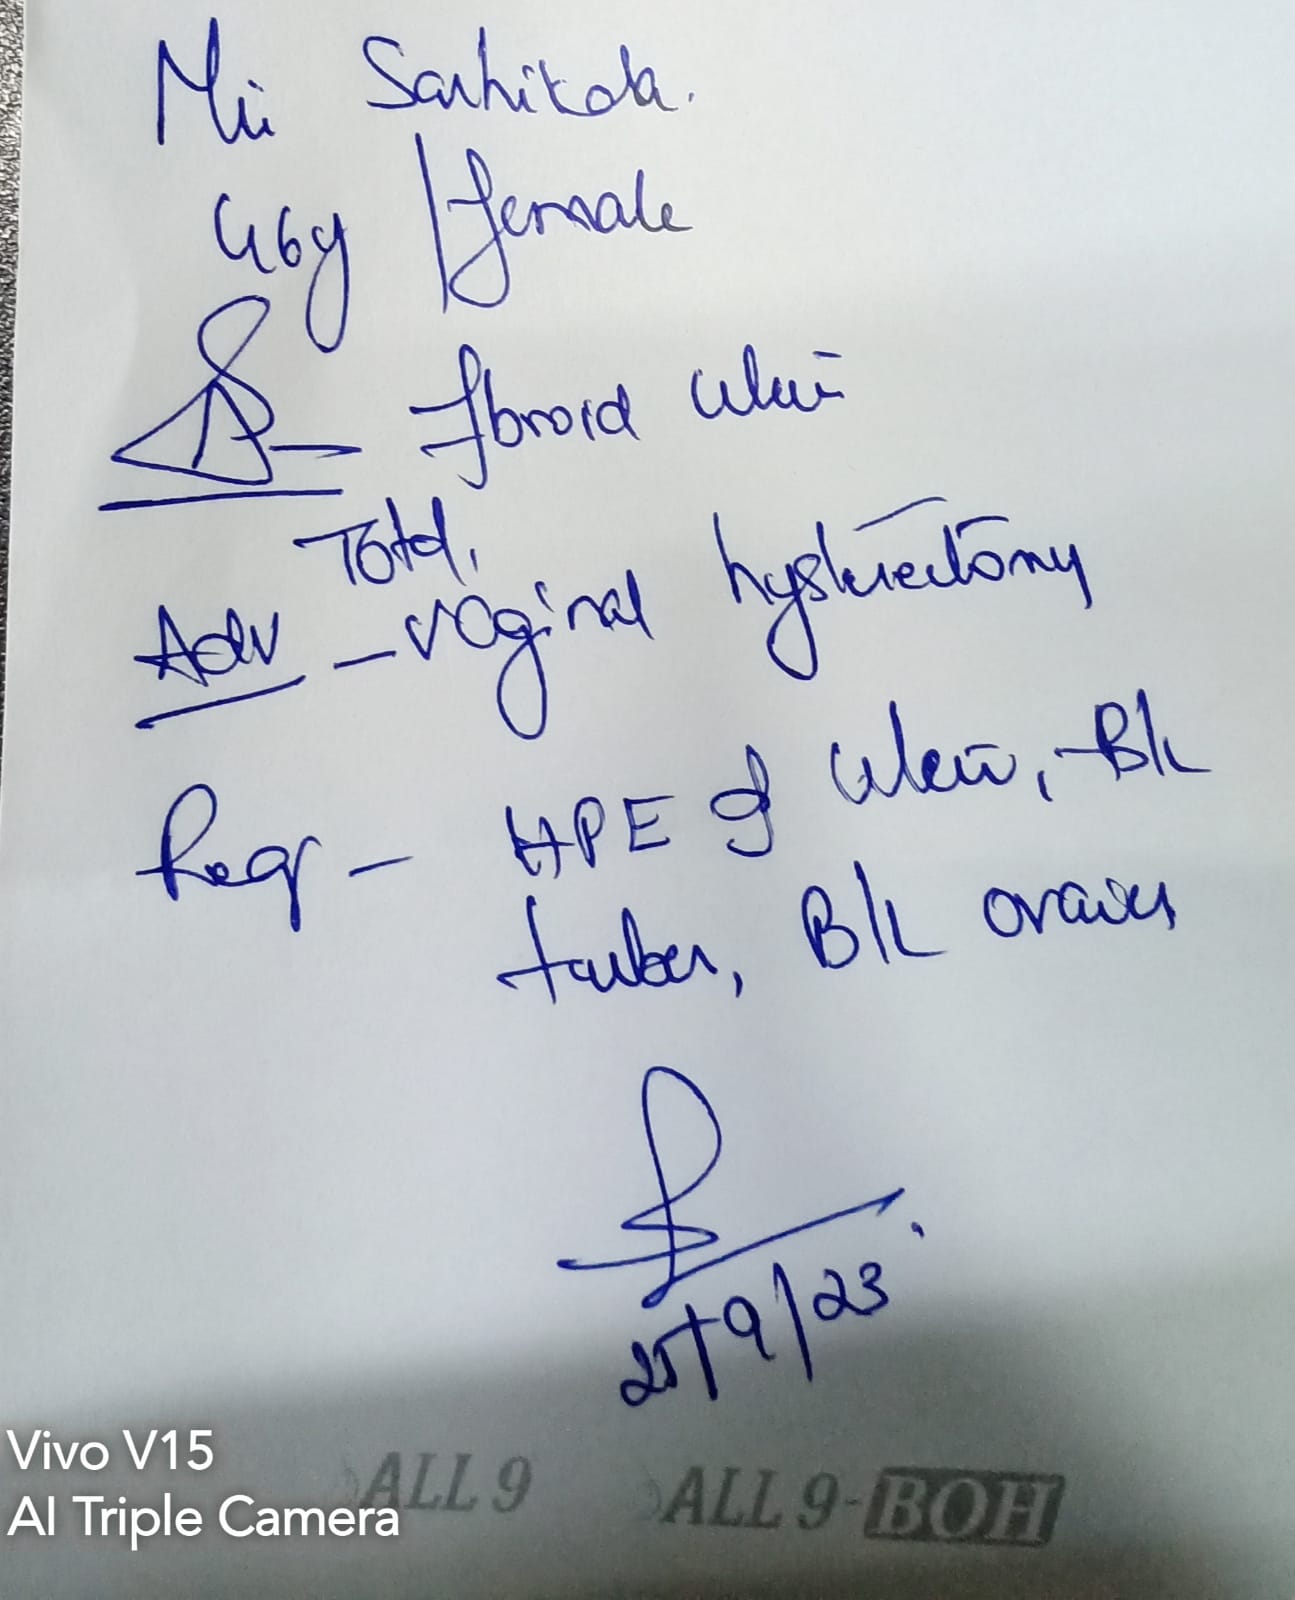 Mrs Sashikala.
46y / female
∆ — fibroid uterus
Total.
Adv — vaginal hysterectomy
Req — HPE of uterus, B/L
tubes, B/L ovaries
25/9/23
Vivo V15
AI Triple Camera
ALL 9 ALL 9-BOH